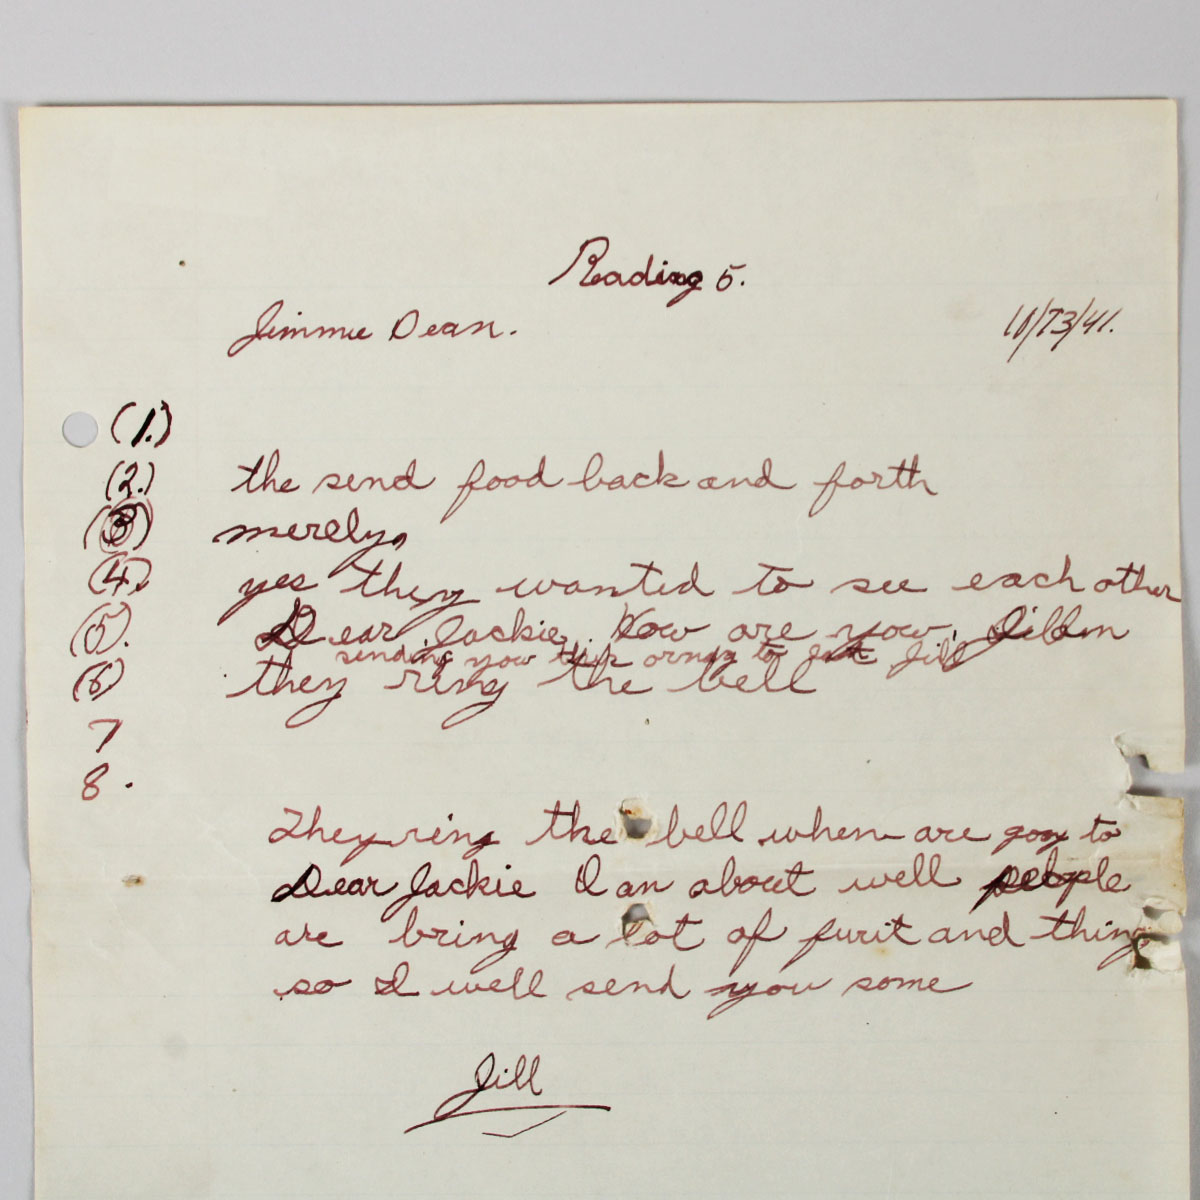 Reading 5.
Jimmie Dean. 10/73/41.
(1.)
(2.) the send food back and forth
(3) merely,
(4.) yes they wanted to see each other
(5). Dear Jackie, How are you,
sending you this to Jill
(6) they ring the bell
7
8.
They ring the bell when are goy to
Dear Jackie I an about well people
are bring a lot of furit and thing
so I well send you some
Jill